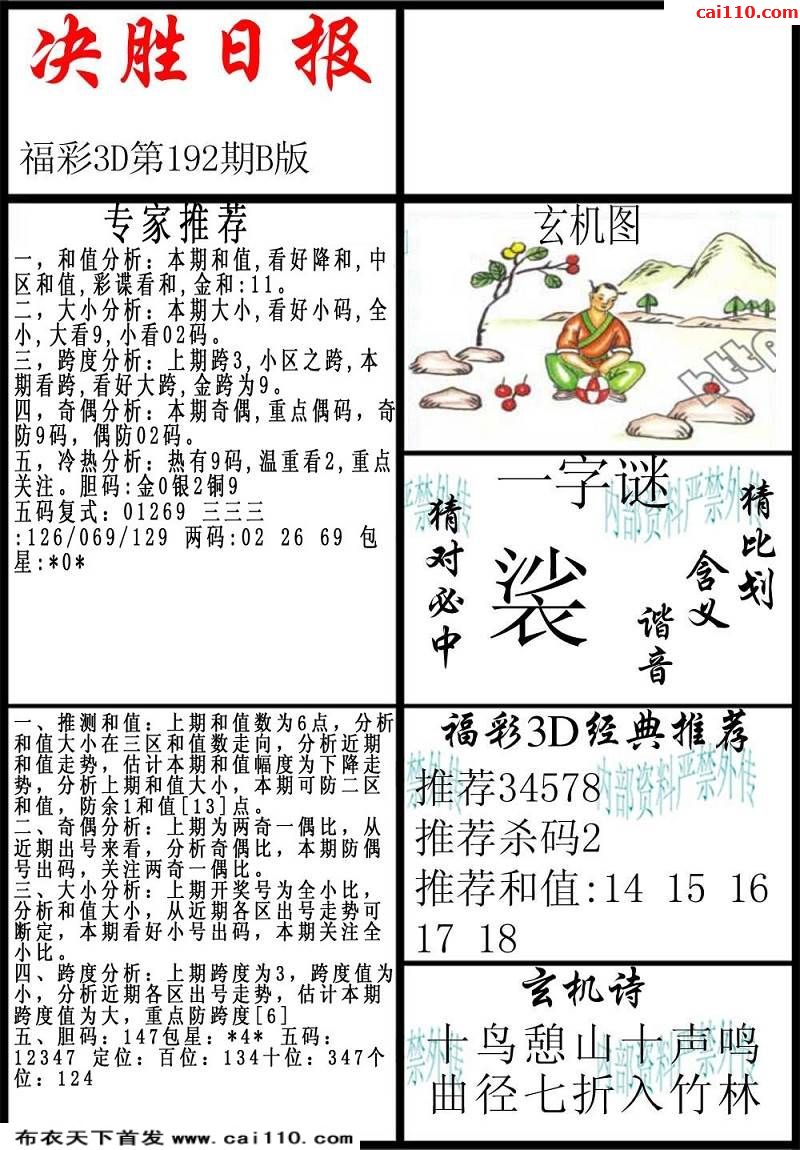 cai110.com
决胜日报
福彩3D第192期B版
专家推荐
一，和值分析：本期和值,看好降和,中
区和值,彩谍看和,金和:11。
二，大小分析：本期大小,看好小码,全
小,大看9,小看02码。
三，跨度分析：上期跨3,小区之跨,本
期看跨,看好大跨,金跨为9。
四，奇偶分析：本期奇偶,重点偶码，奇
防9码，偶防02码。
五，冷热分析：热有9码,温重看2,重点
关注。胆码:金0银2铜9
五码复式：01269 三三三
:126/069/129 两码:02 26 69 包
星:*0*
玄机图
http
一字谜
猜对必中
裟
猜比划
含义
谐音
严禁外传
内部资料严禁外传
一、推测和值：上期和值数为6点，分析
和值大小在三区和值数走向，分析近期
和值走势，估计本期和值幅度为下降走
势，分析上期和值大小，本期可防二区
和值，防余1和值[13]点。
二、奇偶分析：上期为两奇一偶比，从
近期出号来看，分析奇偶比，本期防偶
号出码，关注两奇一偶比。
三、大小分析：上期开奖号为全小比，
分析和值大小，从近期各区出号走势可
断定，本期看好小号出码，本期关注全
小比。
四、跨度分析：上期跨度为3，跨度值为
小，分析近期各区出号走势，估计本期
跨度值为大，重点防跨度[6]
五、胆码：147包星：*4* 五码：
12347 定位：百位：134十位：347个
位：124
福彩3D经典推荐
推荐34578
推荐杀码2
推荐和值:14 15 16
17 18
严禁外传
内部资料严禁外传
玄机诗
十鸟憩山十声鸣
曲径七折入竹林
严禁外传
内部资料严禁外传
布衣天下首发 www.cai110.com